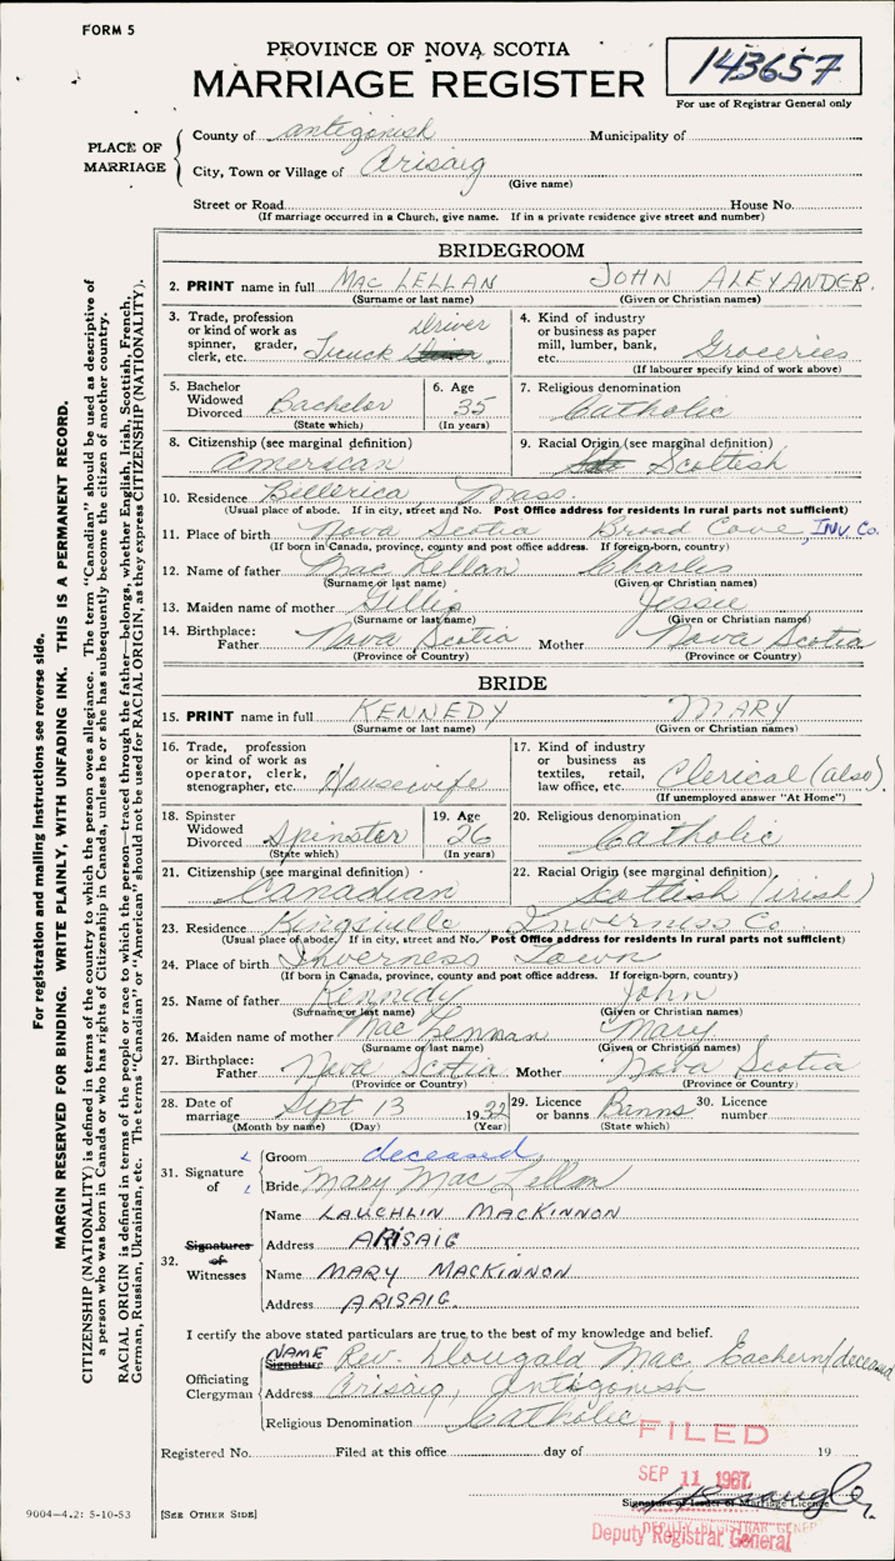 FORM 5
PROVINCE OF NOVA SCOTIA
MARRIAGE REGISTER
143657
For use of Registrar General only
PLACE OF MARRIAGE
County of Antigonish Municipality of
City, Town or Village of Arisaig
(Give name)
Street or Road House No.
(If marriage occurred in a Church, give name. If in a private residence give street and number)
BRIDEGROOM
2. PRINT name in full MAC LELLAN JOHN ALEXANDER.
(Surname or last name) (Given or Christian names)
3. Trade, profession or kind of work as spinner, grader, clerk, etc. Truck Driver
4. Kind of industry or business as paper mill, lumber, bank, etc. Groceries
(If labourer specify kind of work above)
5. Bachelor Widowed Divorced Bachelor
(State which)
6. Age 35
(In years)
7. Religious denomination Catholic
8. Citizenship (see marginal definition) American
9. Racial Origin (see marginal definition) Scottish
10. Residence Billerica, Mass.
(Usual place of abode. If in city, street and No. Post Office address for residents in rural parts not sufficient)
11. Place of birth Nova Scotia Broad Cove, INV. Co.
(If born in Canada, province, county and post office address. If foreign-born, country)
12. Name of father Mac Lellan Charles
(Surname or last name) (Given or Christian names)
13. Maiden name of mother Gillis Jessie
(Surname or last name) (Given or Christian names)
14. Birthplace: Father Nova Scotia Mother Nova Scotia
(Province or Country) (Province or Country)
BRIDE
15. PRINT name in full KENNEDY MARY
(Surname or last name) (Given or Christian names)
16. Trade, profession or kind of work as operator, clerk, stenographer, etc. Housewife
17. Kind of industry or business as textiles, retail, law office, etc. Clerical (also)
(If unemployed answer "At Home")
18. Spinster Widowed Divorced Spinster
(State which)
19. Age 26
(In years)
20. Religious denomination Catholic
21. Citizenship (see marginal definition) Canadian
22. Racial Origin (see marginal definition) Scottish (irish)
23. Residence Kingsville, Inverness Co.
(Usual place of abode. If in city, street and No. Post Office address for residents in rural parts not sufficient)
24. Place of birth Inverness Town
(If born in Canada, province, county and post office address. If foreign-born, country)
25. Name of father Kennedy John
(Surname or last name) (Given or Christian names)
26. Maiden name of mother Mac Lennan Mary
(Surname or last name) (Given or Christian names)
27. Birthplace: Father Nova Scotia Mother Nova Scotia
(Province or Country) (Province or Country)
28. Date of marriage Sept 13 1932
(Month by name) (Day) (Year)
29. Licence or banns Banns
(State which)
30. Licence number
31. Signature of
Groom deceased
Bride Mary Mac Lellan
32. Signatures of Witnesses
Name LAUCHLIN MACKINNON
Address ARISAIG
Name MARY MACKINNON
Address ARISAIG.
I certify the above stated particulars are true to the best of my knowledge and belief.
Officiating Clergyman
NAME Signature Rev. Dougald Mac Eachern/deceased
Address Arisaig, Antigonish
Religious Denomination Catholic
FILED
Registered No. Filed at this office day of 19
SEP 11 1967
Signature of Issuer of Marriage Licence
DEPUTY REGISTRAR GENERAL
Deputy Registrar General
9004—4.2: 5-10-53
[SEE OTHER SIDE]
For registration and mailing instructions see reverse side.
MARGIN RESERVED FOR BINDING. WRITE PLAINLY, WITH UNFADING INK. THIS IS A PERMANENT RECORD.
CITIZENSHIP (NATIONALITY) is defined in terms of the country to which the person owes allegiance. The term "Canadian" should be used as descriptive of
a person who was born in Canada or who has rights of Citizenship in Canada, unless he or she has subsequently become the citizen of another country.
RACIAL ORIGIN is defined in terms of the people or race to which the person—traced through the father—belongs, whether English, Irish, Scottish, French,
German, Russian, Ukrainian, etc. The terms "Canadian" or "American" should not be used for RACIAL ORIGIN, as they express CITIZENSHIP (NATIONALITY).